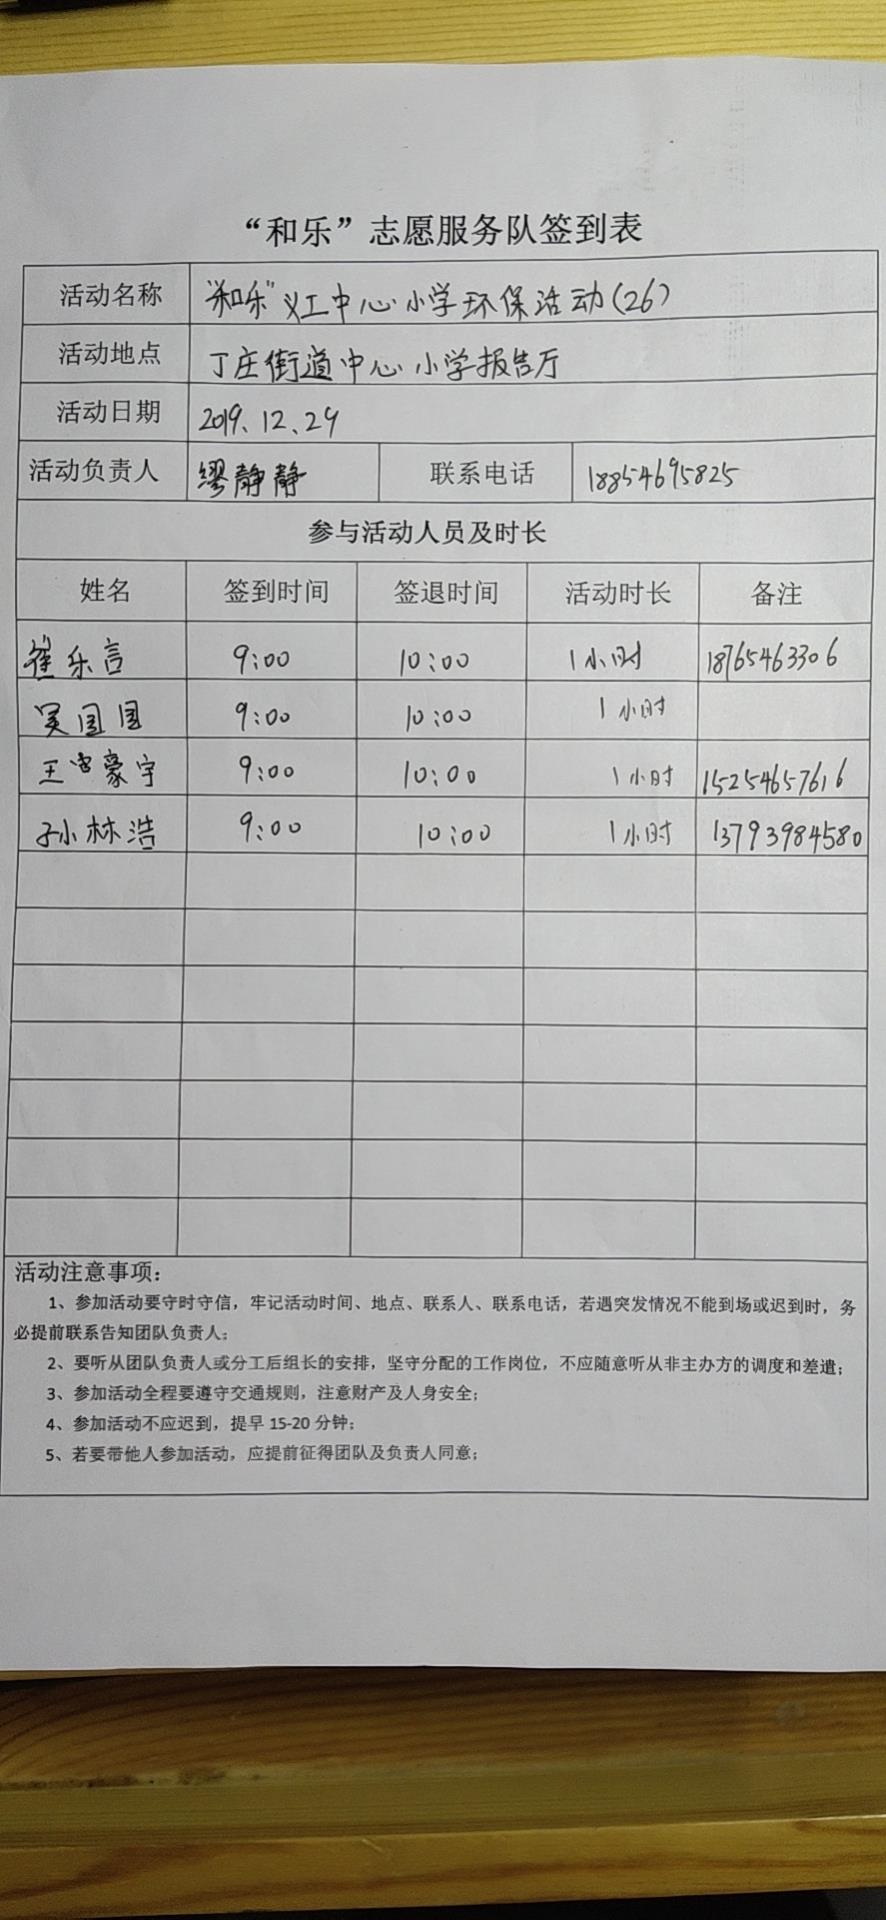 “和乐”志愿服务队签到表
活动名称 “和乐”义工中心小学环保活动(26)
活动地点 丁庄街道中心小学报告厅
活动日期 2019.12.29
活动负责人 缪静静 联系电话 18854695825
参与活动人员及时长
姓名 签到时间 签退时间 活动时长 备注
崔乐言 9:00 10:00 1小时 18765463306
吴国国 9:00 10:00 1小时
王 豪宇 9:00 10:00 1小时 15254657616
孙林浩 9:00 10:00 1小时 13793984580
活动注意事项:
1、参加活动要守时守信，牢记活动时间、地点、联系人、联系电话，若遇突发情况不能到场或迟到时，务
必提前联系告知团队负责人;
2、要听从团队负责人或分工后组长的安排，坚守分配的工作岗位，不应随意听从非主办方的调度和差遣;
3、参加活动全程要遵守交通规则，注意财产及人身安全;
4、参加活动不应迟到，提早 15-20 分钟;
5、若要带他人参加活动，应提前征得团队及负责人同意;